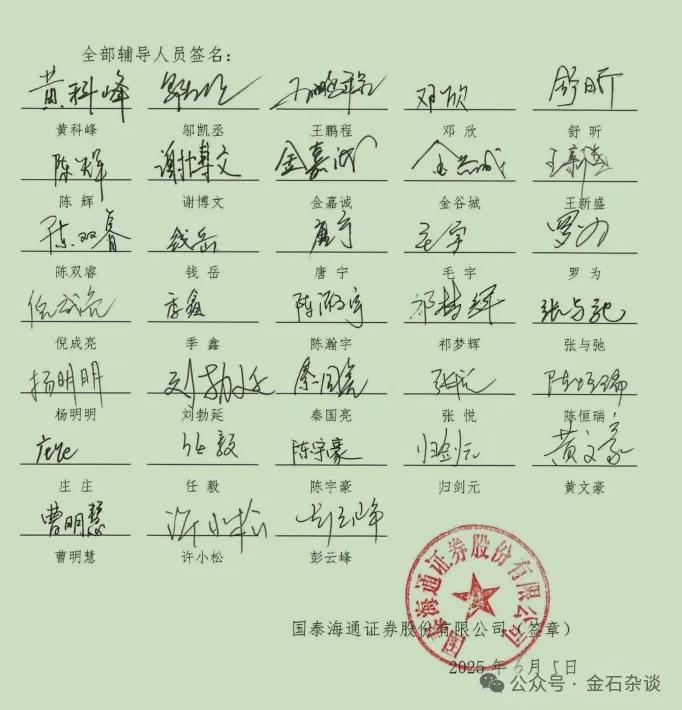 全部辅导人员签名：
黄科峰 邬凯丞 王鹏程 邓欣 舒昕
黄科峰 邬凯丞 王鹏程 邓 欣 舒 昕
陈辉 谢博文 金嘉诚 金谷城 王新盛
陈 辉 谢博文 金嘉诚 金谷城 王新盛
陈双睿 钱岳 唐宁 毛宇 罗为
陈双睿 钱 岳 唐 宁 毛 宇 罗 为
倪成亮 季鑫 陈瀚宇 祁梦辉 张与驰
倪成亮 季 鑫 陈瀚宇 祁梦辉 张与弛
杨明明 刘勃延 秦国亮 张悦 陈恒瑞
杨明明 刘勃延 秦国亮 张 悦 陈恒瑞
庄庄 任毅 陈宇豪 归剑元 黄文豪
庄 庄 任 毅 陈宇豪 归剑元 黄文豪
曹明慧 许小松 彭云峰
曹明慧 许小松 彭云峰
国泰海通证券股份有限公司
国泰海通证券股份有限公司（签章）
2025 年 6 月 5 日
公众号 · 金石杂谈